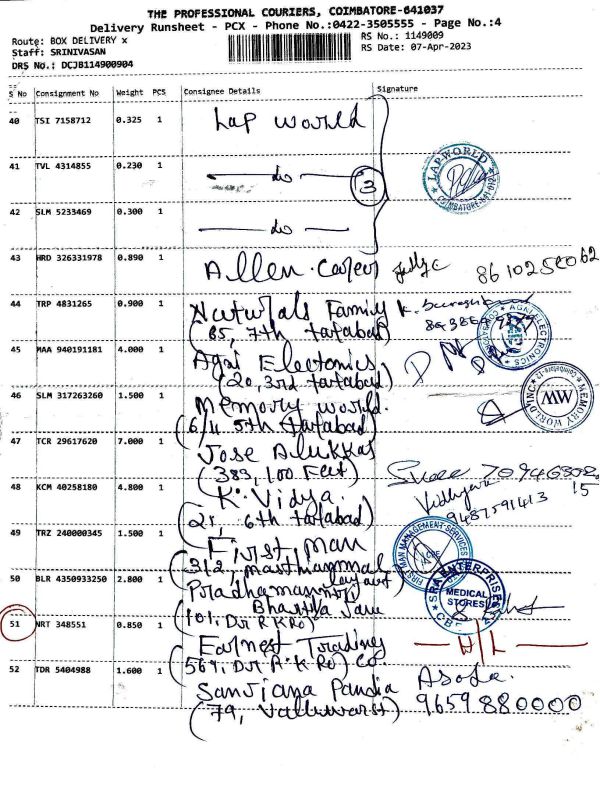 THE PROFESSIONAL COURIERS, COIMBATORE-641037
Delivery Runsheet - PCX - Phone No.:0422-3505555 - Page No.:4
Route: BOX DELIVERY x
RS No.: 1149009
Staff: SRINIVASAN
RS Date: 07-Apr-2023
DRS No.: DCJB114900904
S No Consignment No Weight PCS Consignee Details Signature
40 TSI 7158712 0.325 1 Lap world
41 TVL 4314855 0.230 1 do
3
LAP-WORLD
COIMBATORE-641 012
42 SLM 5233469 0.300 1 do
43 HRD 326331978 0.890 1 Allen Career
44 TRP 4831265 0.900 1 Naturals Family
(65, 7th tatabad)
AGAI ELECTRONICS
45 MAA 940191181 4.000 1 Agai Electonics
(20, 3rd tatabad)
46 SLM 317263260 1.500 1 Memory world.
(6/4 5th tatabad)
MEMORY WORLD INC
MW
47 TCR 29617620 7.000 1 Jose Alukkas
(383, 100 Feet)
48 KCM 40258180 4.800 1 K. Vidya.
(21, 6th tatabad)
Vidhya
9487591413
49 TRZ 240000345 1.500 1 First man
(312, layout
FIRST MAN MANAGEMENT SERVICES
50 BLR 4350933250 2.800 1 Pradhamanthiri
Bharthia Janu
(101, Dr. R.K Ro)
SRA ENTERPRISES
MEDICAL
STORES
CBE
51 NRT 348551 0.850 1 Earnest Trading Co.
(569, Dr. R.K Ro)
D/L
52 TDR 5404988 1.600 1 Sanjana Pandia
(79, Valluvar st)
Asoka.
9659880000